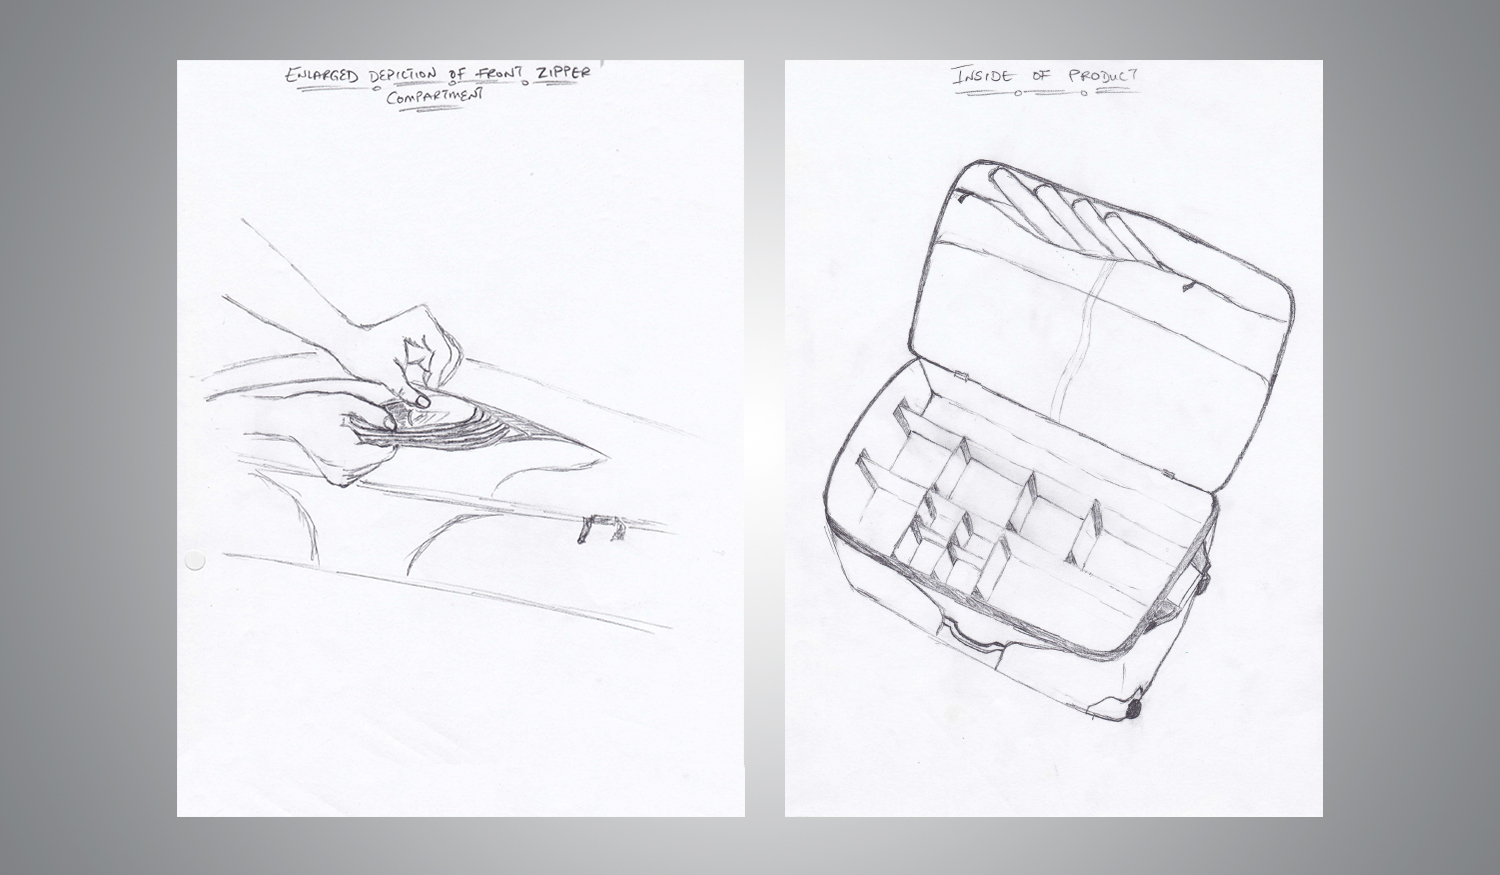 ENLARGED DEPICTION OF FRONT ZIPPER
COMPARTMENT
INSIDE OF PRODUCT